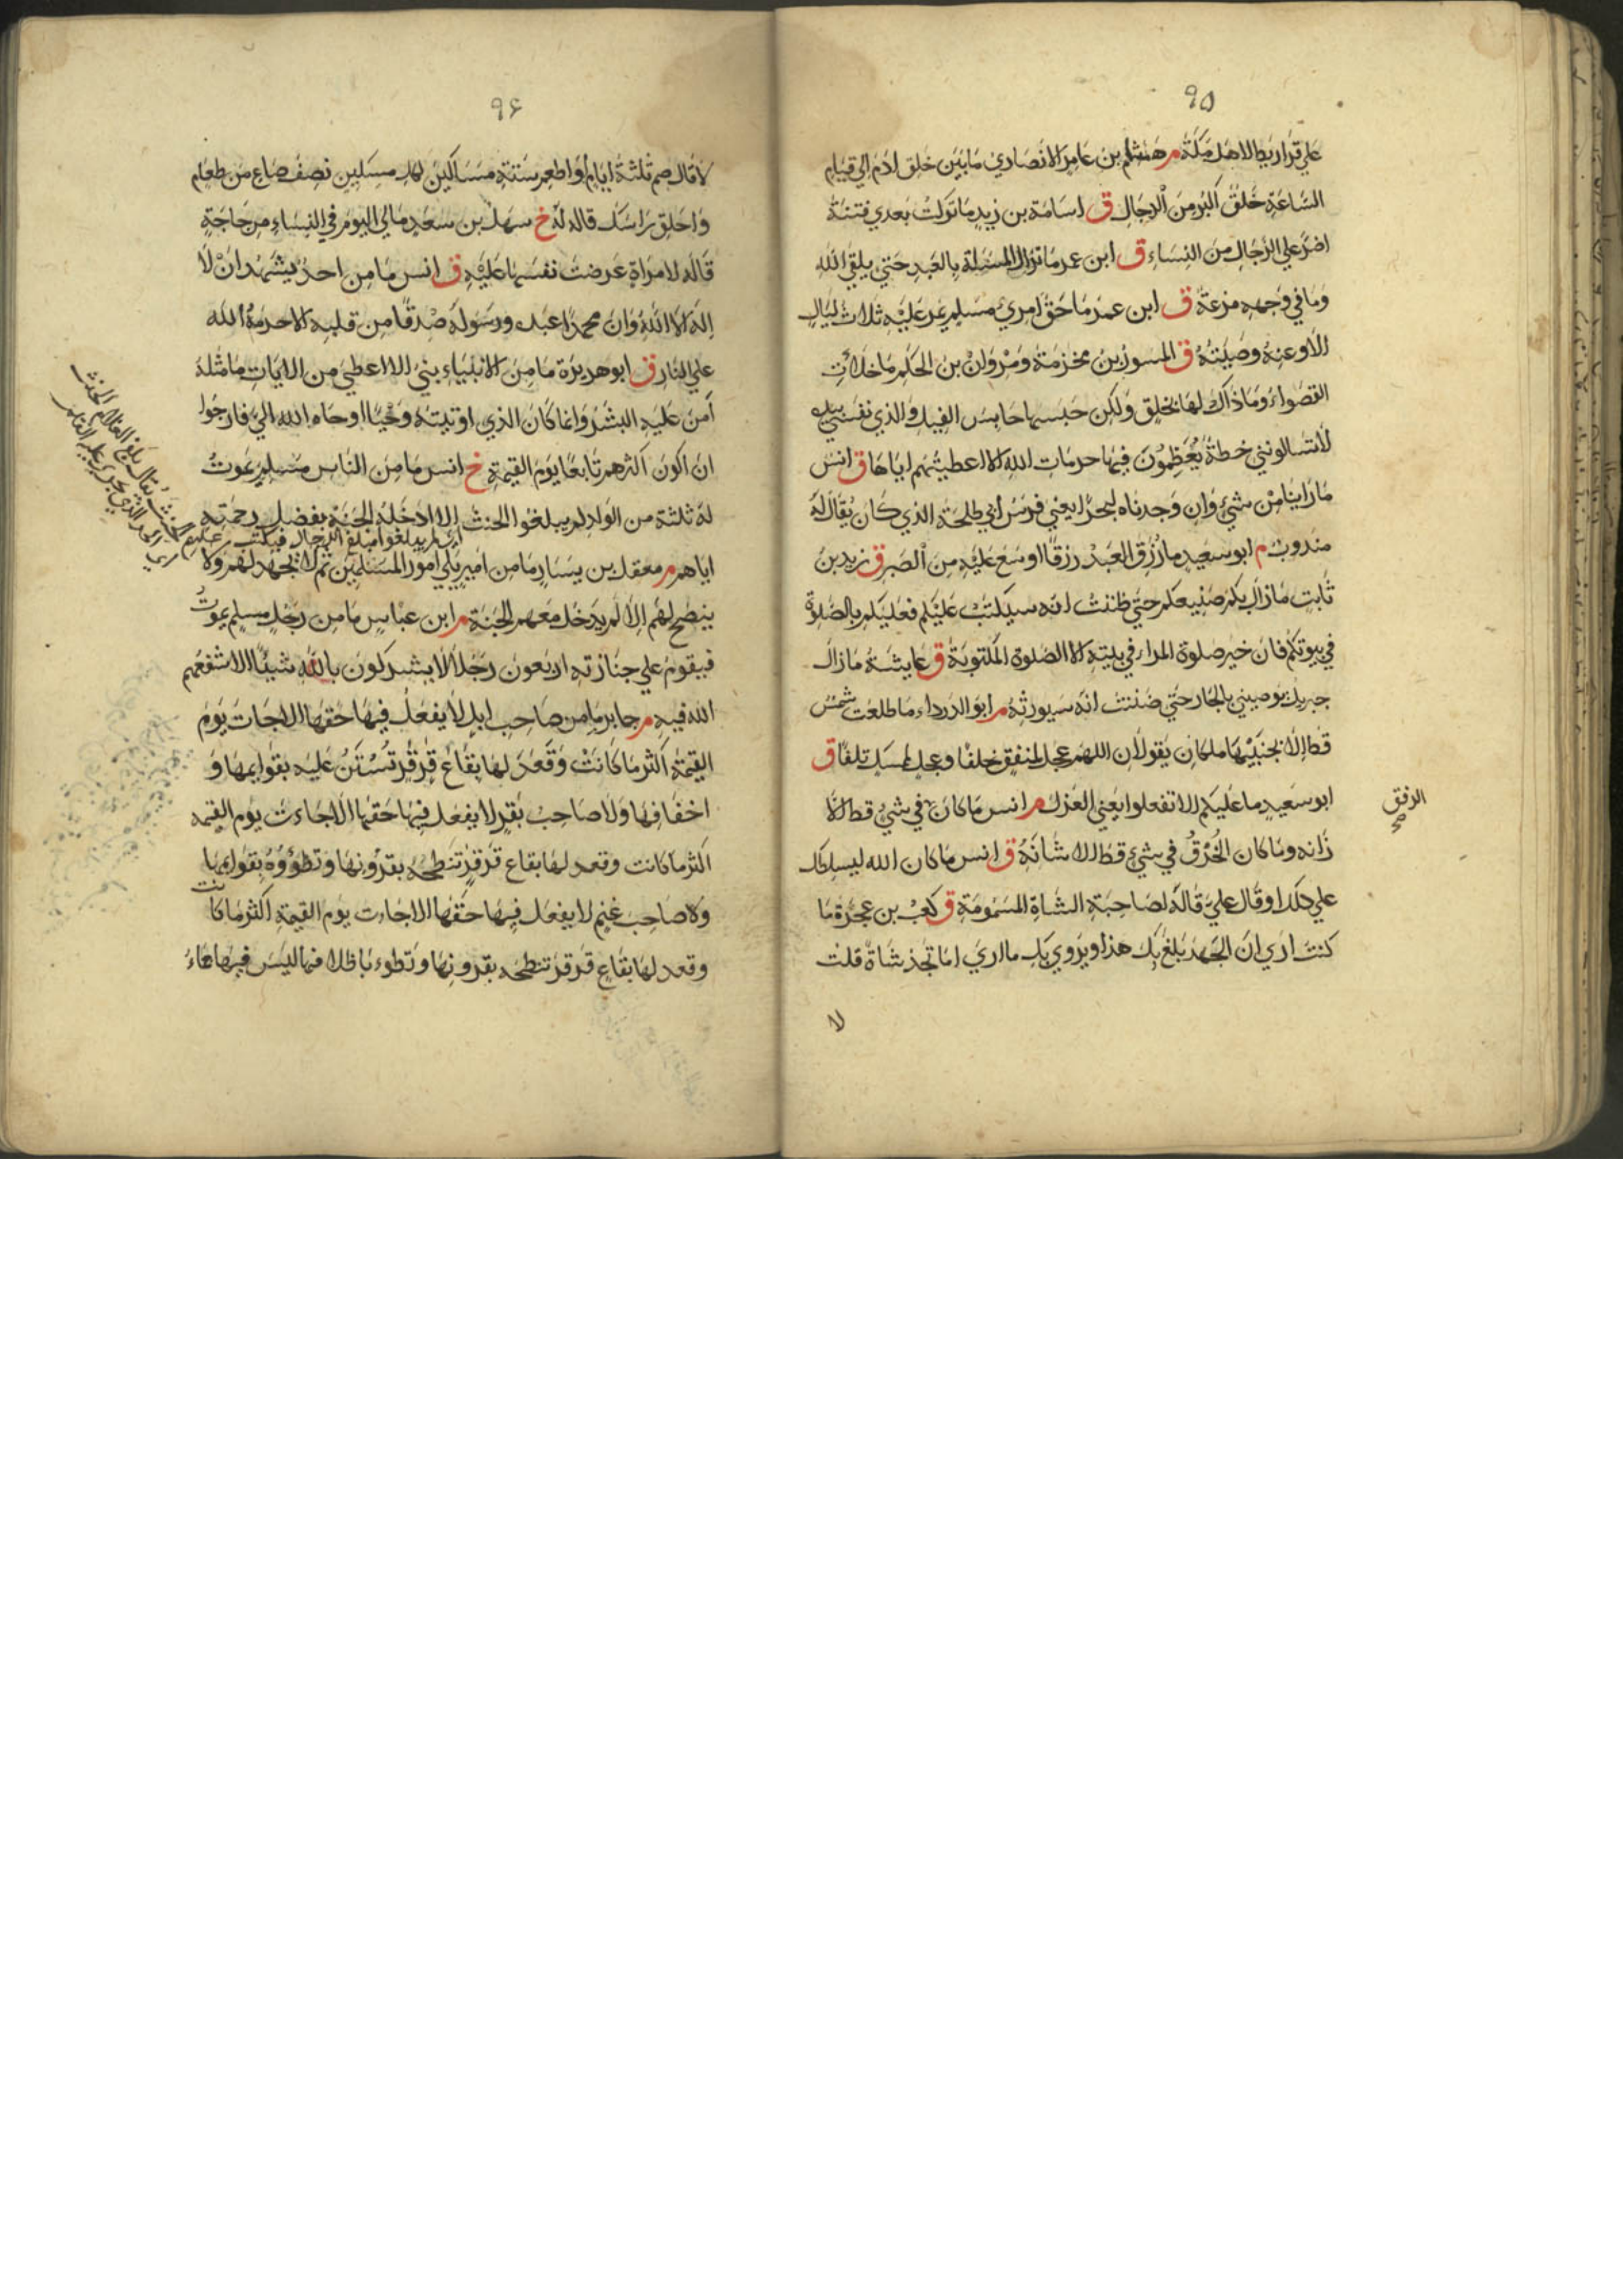 ٩٥
علي قراريط لاهل مكة م هشام بن عامر الانصاري ما بين خلق ادم الي قيام
الساعة خلق اكبر من الدجال ق اسامة بن زيد ما تركت بعدي فتنة
اضر علي الرجال من النساء ق ابن عمر ما تزال المسئلة بالعبد حتي يلقي الله
وما في وجهه مزعة ق ابن عمر ما حق امرئ مسلم يمر عليه ثلاث ليال
الا وعنده وصيته ق المسور بن مخزمة ومروان بن الحكم ما خلأت
القصواء وما ذاك لها بخلق ولكن حبسها حابس الفيل والذي نفسي بيده
لا تسالونني خطة يعظمون فيها حرمات الله الا اعطيتهم اياها ق انس
ما راينا من شيء وان وجدناه لبحرا يعني فرس ابي طلحة الذي كان يقال له
مندوب م ابو سعيد ما رزق العبد رزقا اوسع عليه من الصبر ق زيد بن
ثابت ما زال بكم صنيعكم حتي ظننت انه سيكتب عليكم فعليكم بالصلوة
في بيوتكم فان خير صلوة المراء في بيته الا الصلوة المكتوبة ق عايشة ما زال
جبريل يوصيني بالجار حتي ضننت انه سيورثه م ابو الدرداء ما طلعت شمس
قط الا بجنبيها ملكان يقولان اللهم عجل لمنفق خلفا وعجل لممسك تلفا ق
ابو سعيد ما عليكم الا تفعلوا يعني العزل م انس ما كان في شيء قط الا
الرفق صح
زانه وما كان الخرق في شيء قط الا شانه ق انس ما كان الله ليسلطك
علي ذلك او قال علي قاله لصاحبة الشاة المسمومة ق كعب بن عجرة ما
كنت اري ان الجهد بلغ بك هذا ويروي بك ما اري اما تجد شاة قلت
لا
٩۶
لا قال صم ثلثة ايام او اطعم ستة مساكين لكل مسكين نصف صاع من طعام
واحلق راسك قاله له خ سهل بن سعد مالي اليوم في النساء من حاجة
قاله لامراة عرضت نفسها عليه ق انس ما من احد يشهد ان لا
اله الا الله وان محمدا عبده ورسوله صدقا من قلبه الا حرمه الله
علي النار ق ابو هريرة ما من الانبياء بني الا اعطي من الايات ما مثله
آمن عليه البشر وانما كان الذي اوتيته وحيا اوحاه الله الي فارجوا
ان اكون اكثرهم تابعا يوم القيمة خ انس ما من الناس مسلم يموت
له ثلثة من الولد لم يبلغوا الحنث الا ادخله الجنة بفضل رحمته
اي لم يبلغوا مبلغ الرجال فيكتب عليهم الحنث يقال بلغ الغلام الحنث
اي الحد الذي يجري عليه القلم
اياهم م معقل بن يسار ما من امير يلي امور المسلمين ثم لا يجهد لهم ولا
ينصح لهم الا لم يدخل معهم الجنة م ابن عباس ما من رجل مسلم يموت
فيقوم علي جنازته اربعون رجلا لا يشركون بالله شيئا الا شفعهم
الله فيه م جابر ما من صاحب ابل لا يفعل فيها حقها الا جات يوم
القيمة اكثر ما كانت وقعد لها بقاع قرقر تستن عليه بقوايمها و
اخفافها ولا صاحب بقر لا يفعل فيها حقها الا جاءت يوم القيمه
اكثر ما كانت وقعد لها بقاع قرقر تنطحه بقرونها وتطؤوه بقوايمها
ولا صاحب غنم لا يفعل فيها حقها الا جاءت يوم القيمة اكثر ما كانت
وقعد لها بقاع قرقر تنطحه بقرونها وتطوءه باظلافها ليس فيها جماء